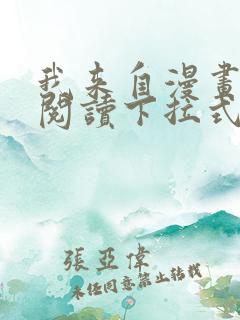 我来自漫畫
閱讀下拉式
張亞偉
未经同意禁止转载